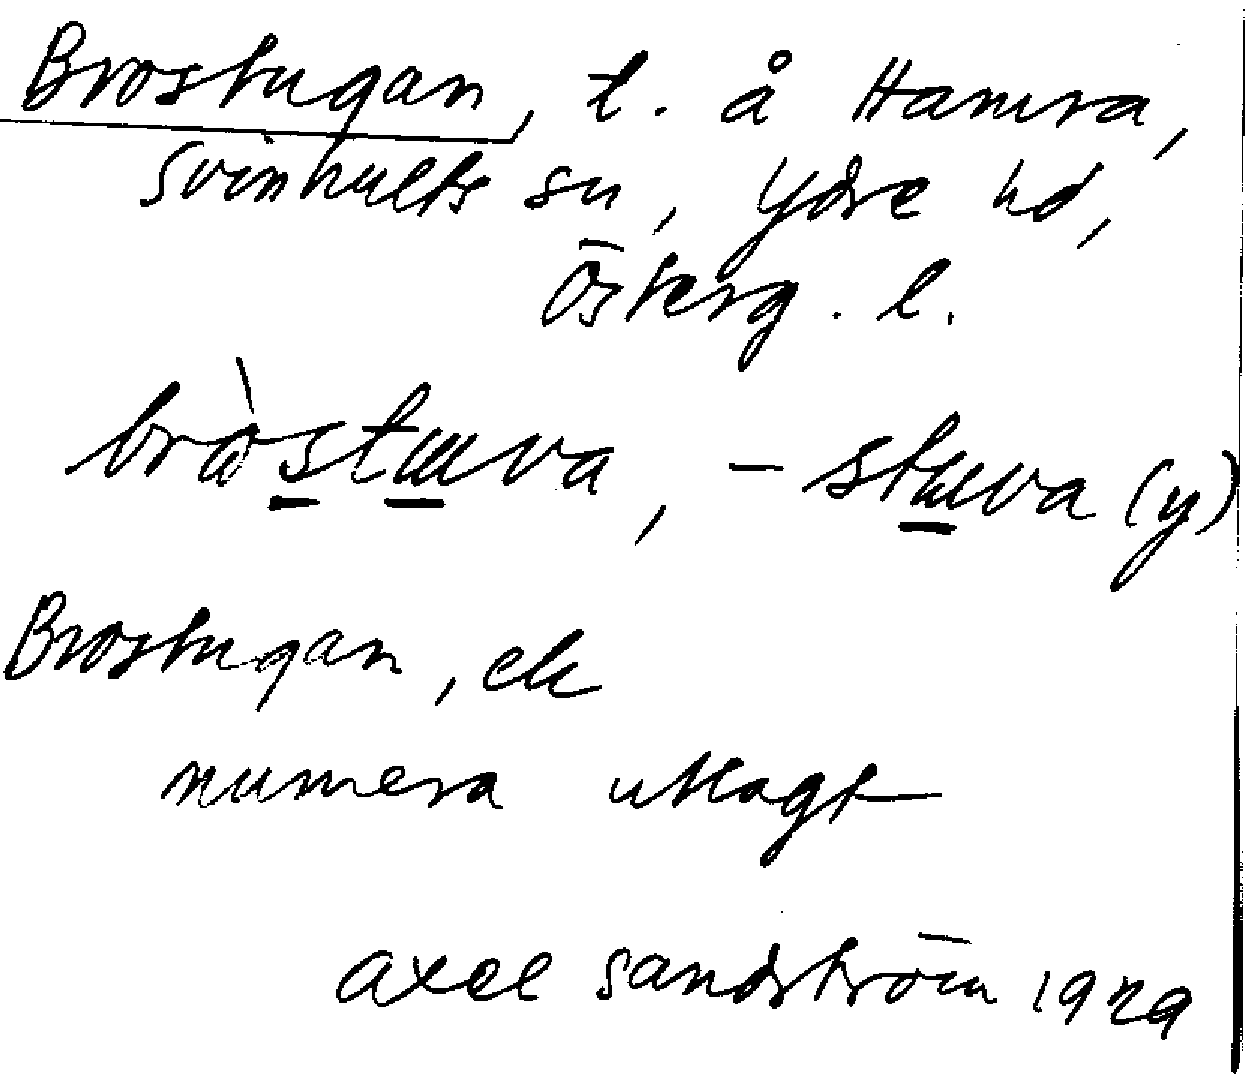 Brostugan, t. å Hamra,
Svinhults sn, Ydre hd,
Österg. l.
bròstuva, -stuva (y)
Brostugan, ek
numera utlagt
Axel Sandström 1929